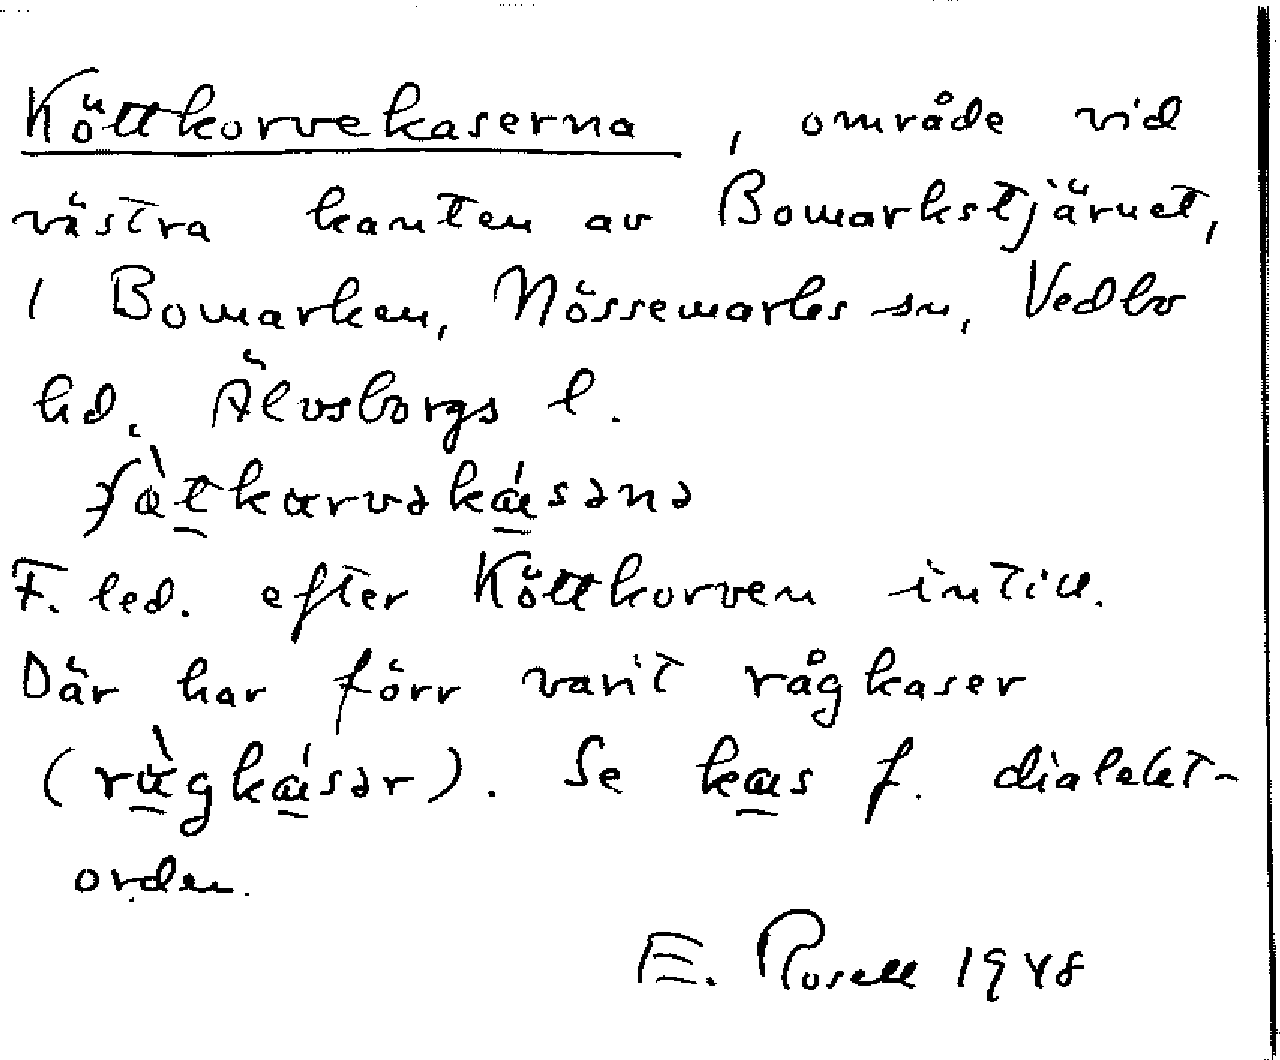 Köttkorvekaserna, område vid
västra kanten av Bomarkstjärnet,
i Bomarken, Nössemarks sn, Vedbo
hd. Älvsborgs l.
F. led. efter Köttkorven intill.
Där har förr varit rågkaser
(rùgkásər). Se kas f. dialekt-
orden.
E. Rosell 1948